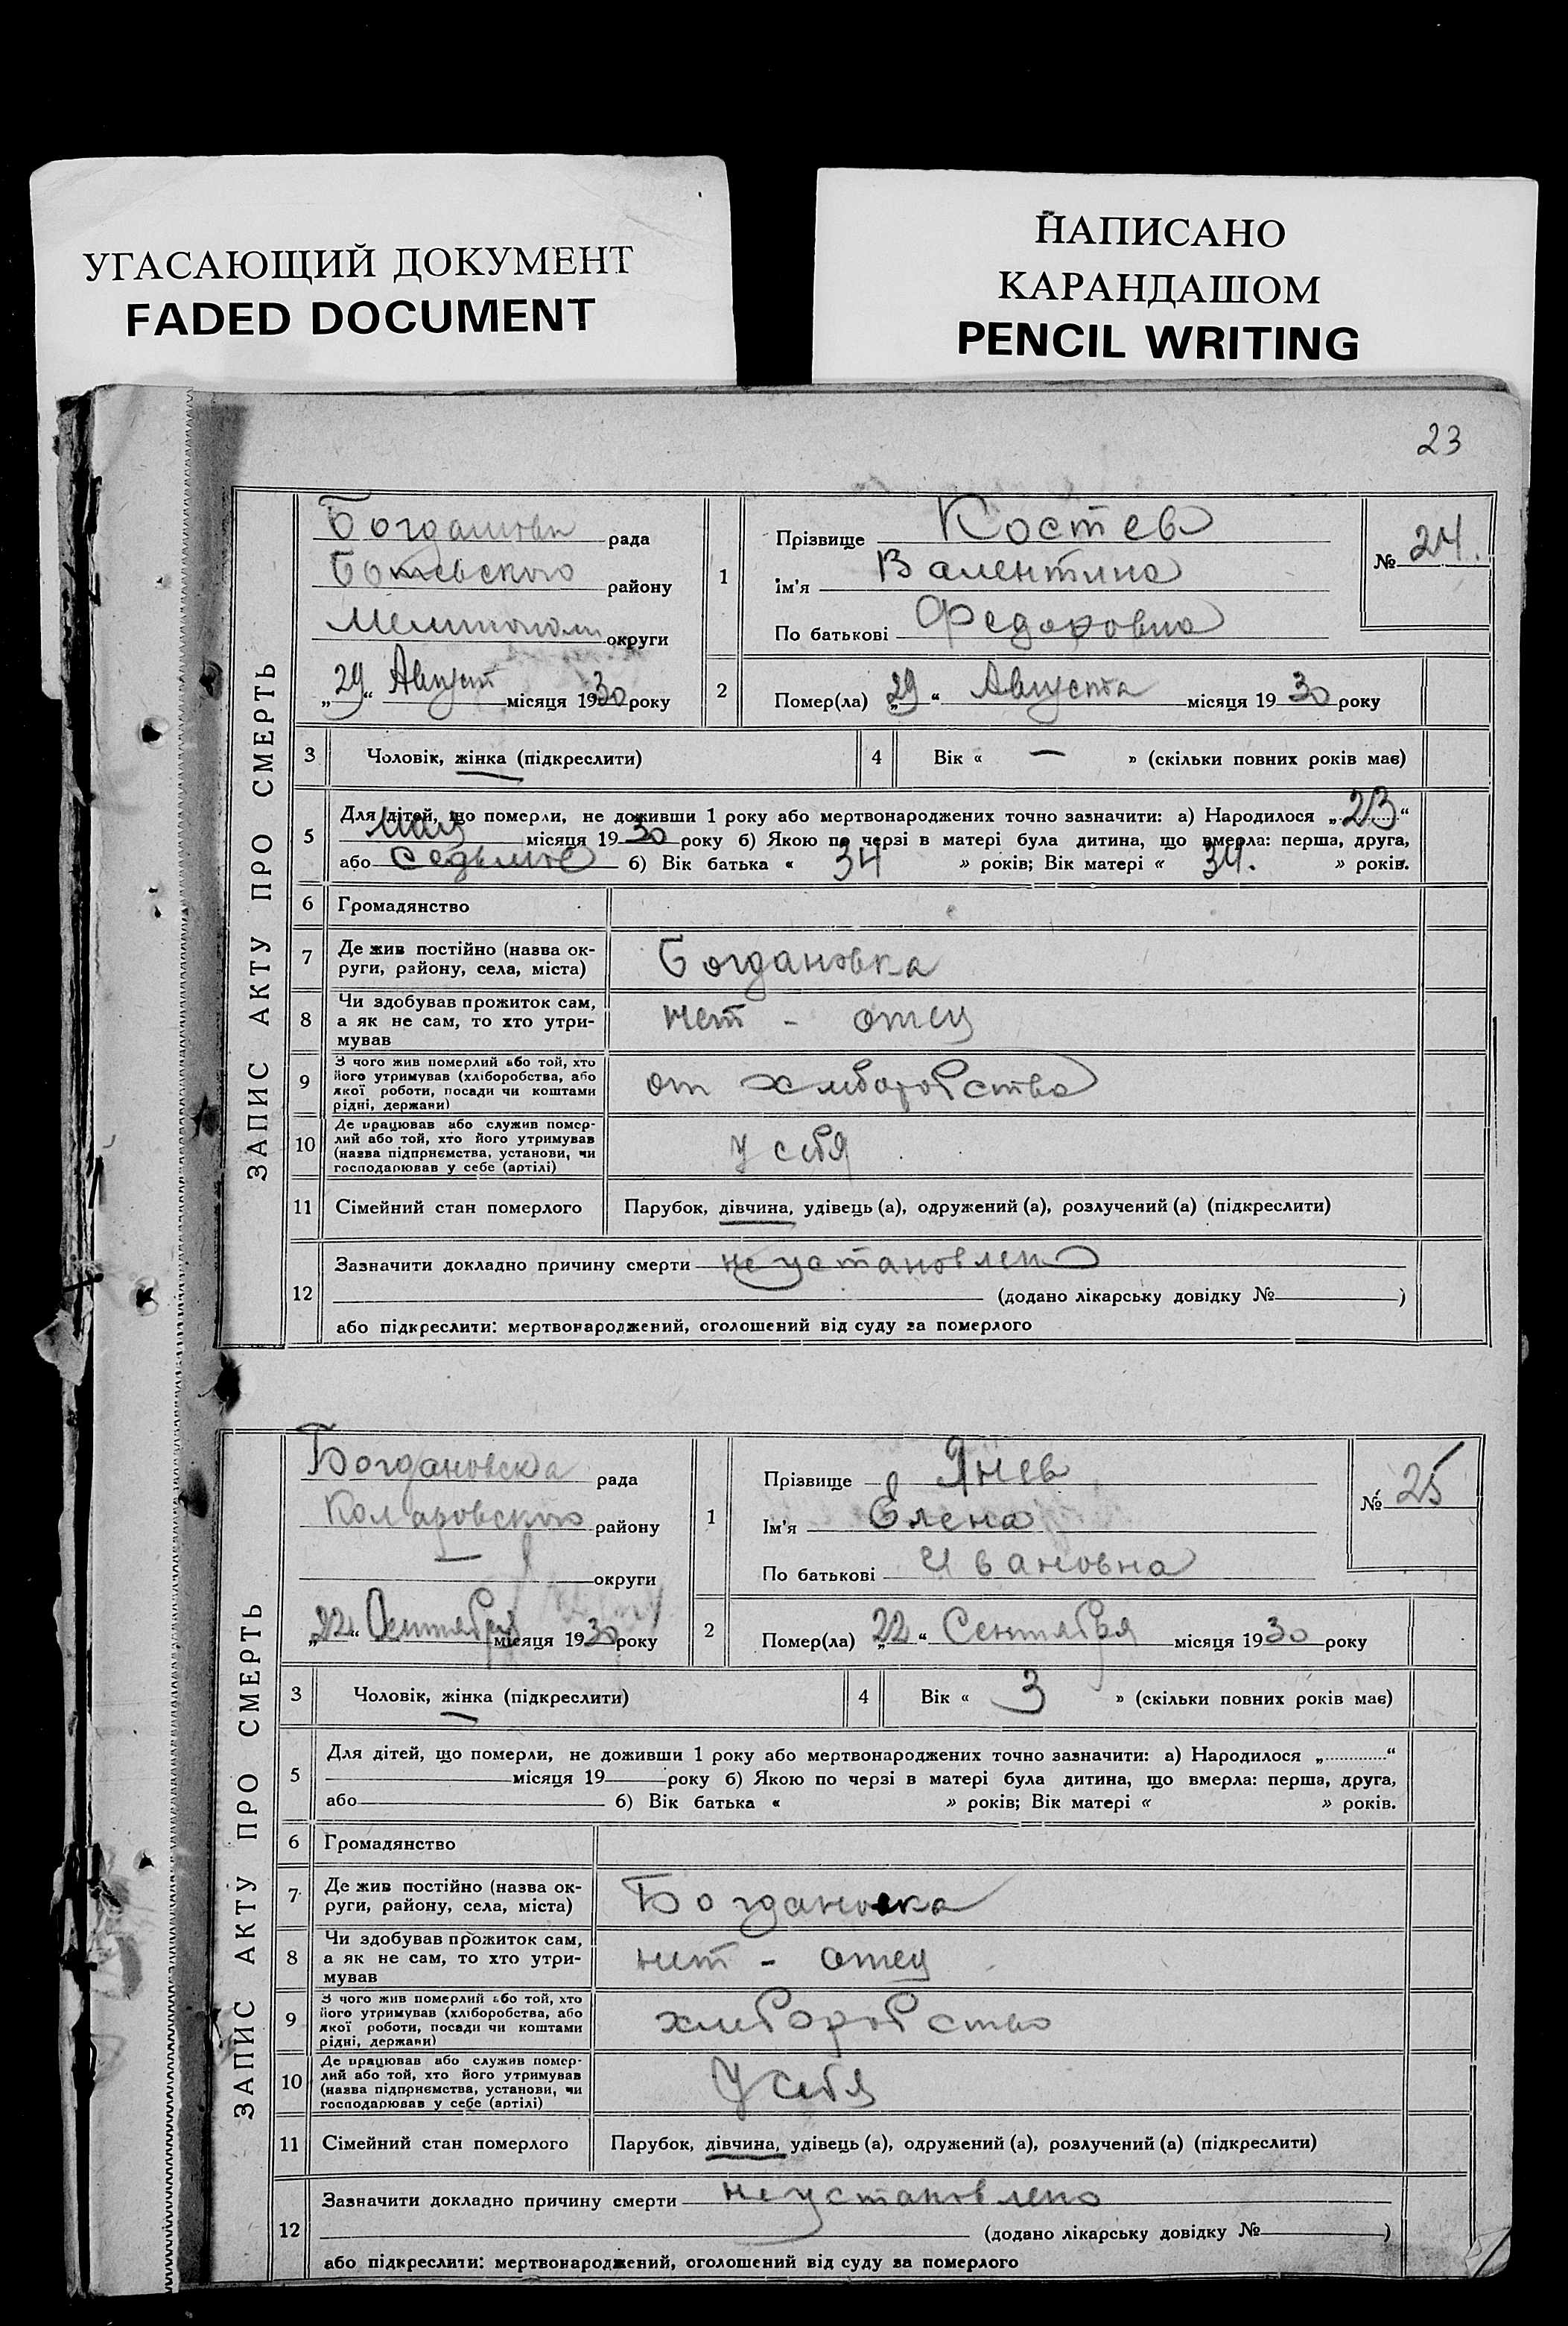 УГАСАЮЩИЙ ДОКУМЕНТ
FADED DOCUMENT
НАПИСАНО
КАРАНДАШОМ
PENCIL WRITING
23
ЗАПИС АКТУ ПРО СМЕРТЬ
рада
Ботевского району
округи
„29“ Август місяця 1930 року
1
Прізвище Костев
Ім'я Валентина
По батькові Федоровна
№ 24.
2
Помер(ла) „29“ Августа місяця 1930 року
3 Чоловік, жінка (підкреслити)
4 Вік « — » (скільки повних років має)
5
Для дітей, що померли, не доживши 1 року або мертвонароджених точно зазначити: а) Народилося „23“
мая місяця 1930 року б) Якою по черзі в матері була дитина, що вмерла: перша, друга,
або б) Вік батька « 34 » років; Вік матері « 34. » років.
6 Громадянство
7
Де жив постійно (назва ок-
руги, району, села, міста)
Богдановка
8
Чи здобував прожиток сам,
а як не сам, то хто утри-
мував
нет - отец
9
З чого жив померлий або той, хто
його утримував (хліборобства, або
якої роботи, посади чи коштами
рідні, держави)
от хлеборобства
10
Де працював або служив помер-
лий або той, хто його утримував
(назва підприємства, установи, чи
господарював у себе (артілі)
у себя
11 Сімейний стан померлого Парубок, дівчина, удівець (а), одружений (а), розлучений (а) (підкреслити)
12
Зазначити докладно причину смерти не установлено
(додано лікарську довідку № )
або підкреслити: мертвонароджений, оголошений від суду за померлого
ЗАПИС АКТУ ПРО СМЕРТЬ
Богдановска рада
Коларовского району
— округи
„22“ Сентября місяця 1930 року
1
Прізвище Янев
Ім'я Елена
По батькові Ивановна
№ 25
2
Помер(ла) „22“ Сентября місяця 1930 року
3 Чоловік, жінка (підкреслити)
4 Вік « 3 » (скільки повних років має)
5
Для дітей, що померли, не доживши 1 року або мертвонароджених точно зазначити: а) Народилося „............“
місяця 19 року б) Якою по черзі в матері була дитина, що вмерла: перша, друга,
або б) Вік батька « » років; Вік матері « » років.
6 Громадянство
7
Де жив постійно (назва ок-
руги, району, села, міста)
Богдановка
8
Чи здобував прожиток сам,
а як не сам, то хто утри-
мував
нет - отец
9
З чого жив померлий або той, хто
його утримував (хліборобства, або
якої роботи, посади чи коштами
рідні, держави)
хлеборобство
10
Де працював або служив помер-
лий або той, хто його утримував
(назва підприємства, установи, чи
господарював у себе (артілі)
У себя
11 Сімейний стан померлого Парубок, дівчина, удівець (а), одружений (а), розлучений (а) (підкреслити)
12
Зазначити докладно причину смерти не установлено
(додано лікарську довідку № )
або підкреслити: мертвонароджений, оголошений від суду за померлого